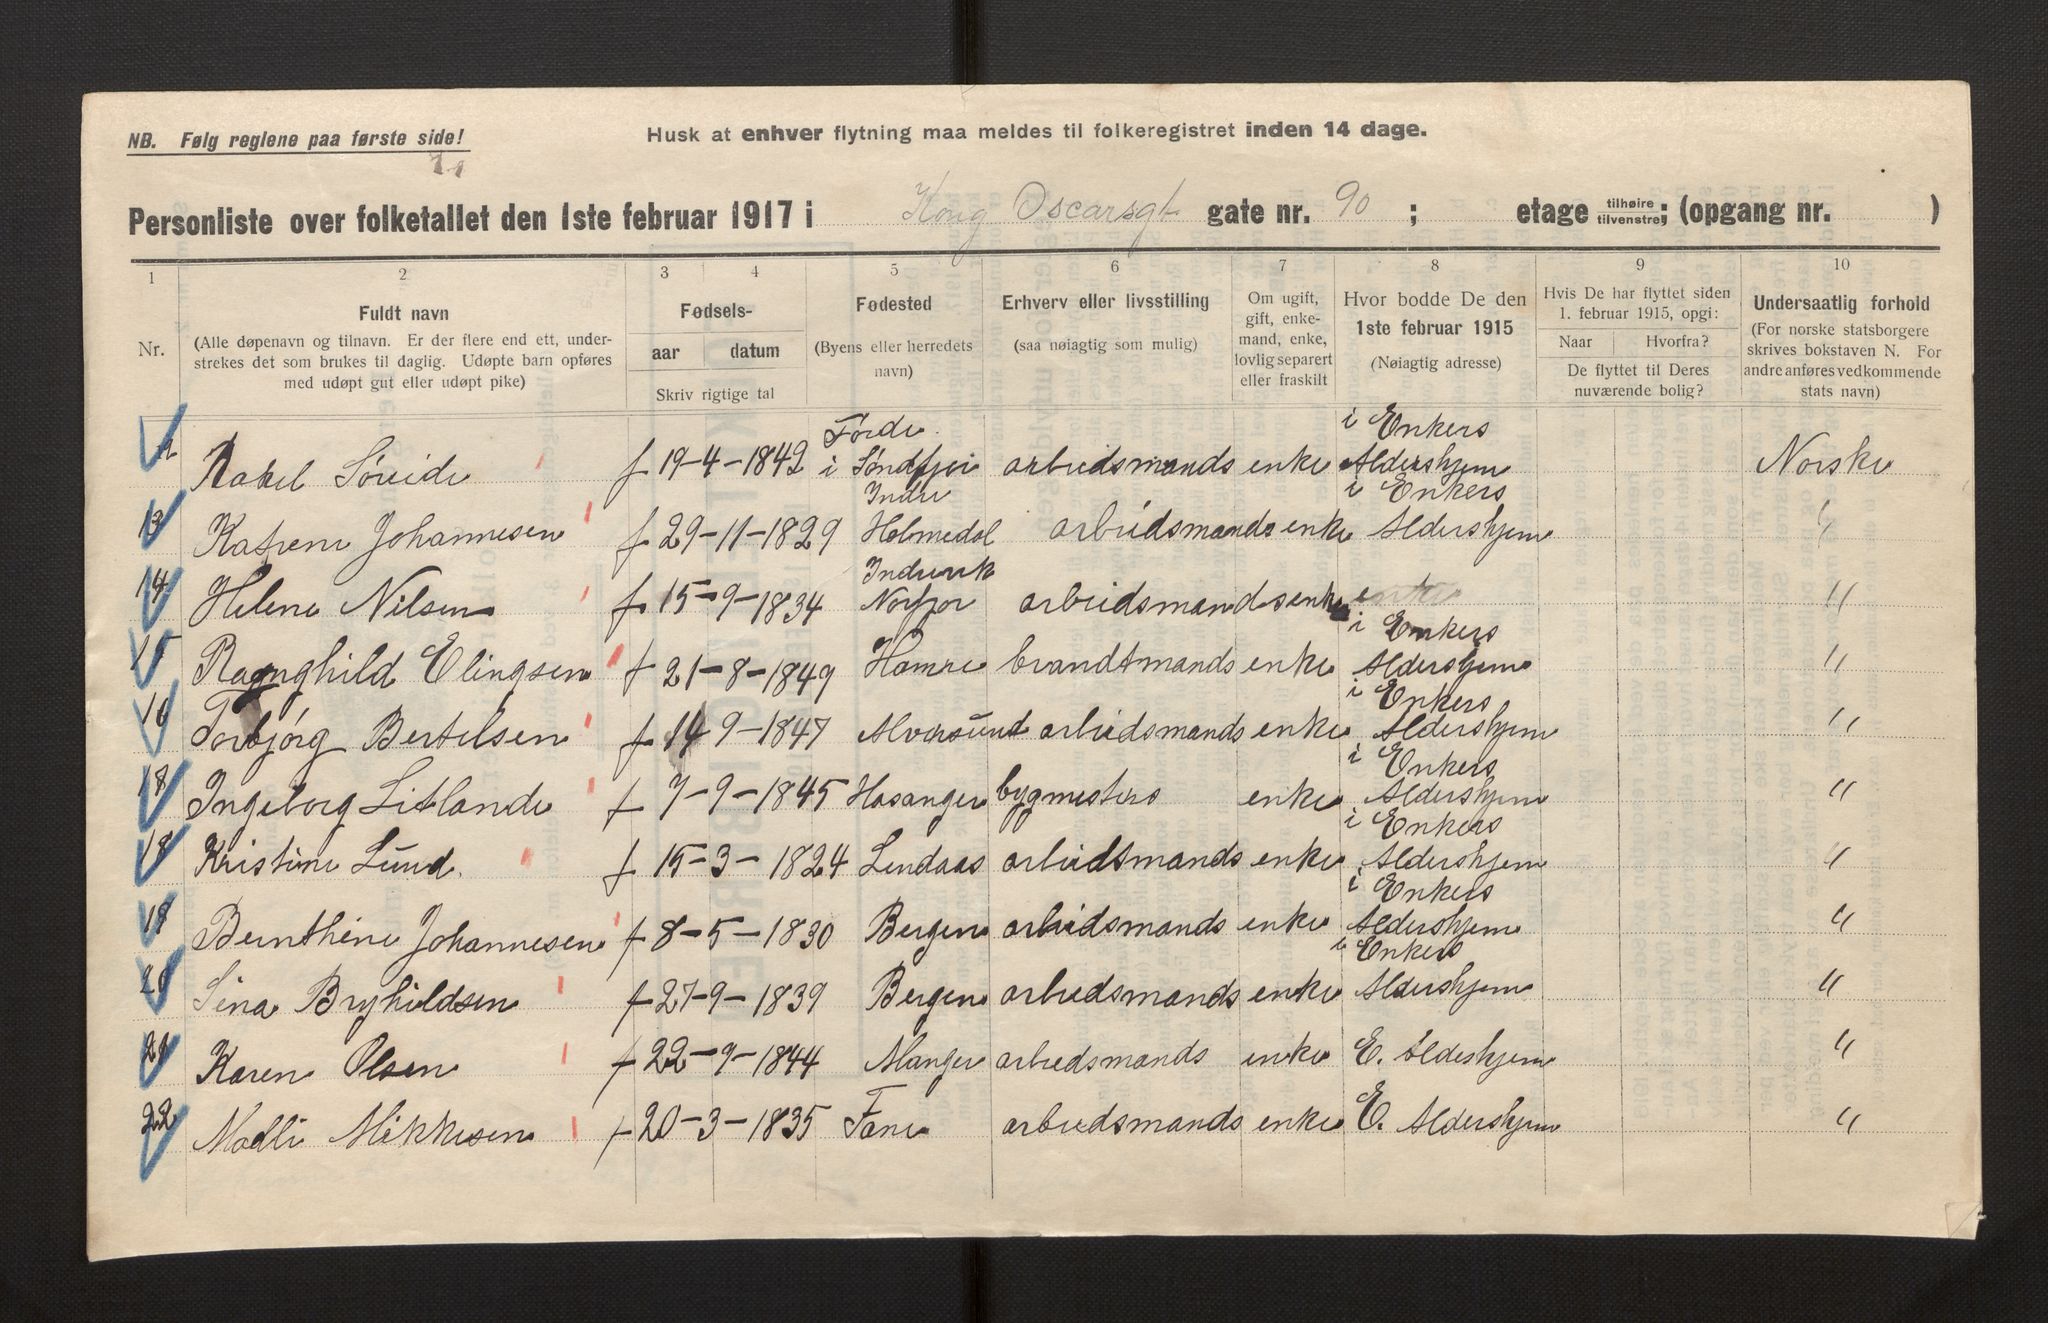 NB. Følg reglene paa første side!
Husk at enhver flytning maa meldes til folkeregistret inden 14 dage.
Personliste over folketallet den 1ste februar 1917 i Kong Oscarsgt gate nr. 90 ; etage tilhøire tilvenstre; (opgang nr. )
1 2 3 4 5 6 7 8 9 10
Nr.
Fuldt navn
(Alle døpenavn og tilnavn. Er der flere end ett, under-
strekes det som brukes til daglig. Udøpte barn opføres
med udøpt gut eller udøpt pike)
Fødsels-
aar datum
Skriv rigtige tal
Fødested
(Byens eller herredets
navn)
Erhverv eller livsstilling
(saa nøiagtig som mulig)
Om ugift,
gift, enke-
mand, enke,
lovlig separert
eller fraskilt
Hvor bodde De den
1ste februar 1915
(Nøiagtig adresse)
Hvis De har flyttet siden
1. februar 1915, opgi:
Naar Hvorfra?
De flyttet til Deres
nuværende bolig?
Undersaatlig forhold
(For norske statsborgere
skrives bokstaven N. For
andre anføres vedkommende
stats navn)
Førde i Enkers
Rakel Søreide f 19-4-1842 i Søndfjor arbeidsmands enke Aldershjem Norske
Indre i Enkers
13 Katrene Johannesen f 29-11-1829 Holmedal arbeidsmands enke Aldershjem "
Indrevik
14 Helene Nilsen f 15-9-1834 Norfjor arbeidsmands enke "
i Enkers
15 Ragnghild Elingsen f 21-8-1849 Hamre brandtmands enke Aldershjem "
i Enkers
16 Torbjørg Bertelsen f 14 9-1847 Alversund arbeidsmands enke Aldershjem "
i Enkers
18 Ingeborg Litlande f 7-9-1845 Hosanger bygmesters enke Aldershjem "
i Enkers
18 Kristine Lund. f 15-3-1824 Lindaas arbeidtmands enke Aldershjem "
i Enkers
19 Bernthine Johannesen f 8-5-1830 Bergen arbeidsmands enke Aldershjem "
i Enkers
20 Sina Bryhildsen f 27-9-1839 Bergen arbeidsmands enke Aldershjem "
21 Karen Olsen f 22-9-1844 Manger arbeidsmands enke E. Aldeshjem "
22 Madli Mikkesen f 20-3-1835 Fane arbeidsmands enke E. Aldershjem "